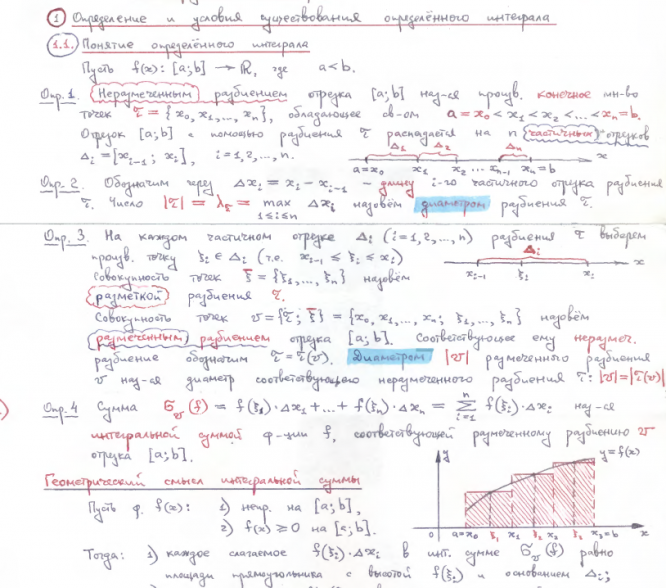 ① Определение и условия существования определённого интеграла
1.1. Понятие определённого интеграла
Пусть f(x): [a;b] → ℝ, где a<b.
Опр.1 Неразмеченным разбиением отрезка [a;b] наз-ся произв. конечное мн-во
точек τ = {x₀, x₁,..., xₙ}, обладающее св-ом a = x₀ < x₁ < x₂ < ... < xₙ = b.
Отрезок [a;b] с помощью разбиения τ распадается на n частичных отрезков
Δᵢ = [xᵢ₋₁; xᵢ], i = 1,2,..., n.
Δ₁ Δ₂ Δₙ
a=x₀ x₁ x₂ ... xₙ₋₁ xₙ=b x
Опр. 2. Обозначим через Δxᵢ = xᵢ - xᵢ₋₁ - длину i-го частичного отрезка разбиения
τ. Число |τ| = λ_τ = max Δxᵢ назовём диаметром разбиения τ.
1≤i≤n
Опр. 3. На каждом частичном отрезке Δᵢ (i=1,2,..., n) разбиения τ выберем
произв. точку ξᵢ ∈ Δᵢ (т.е. xᵢ₋₁ ≤ ξᵢ ≤ xᵢ)
Δᵢ
xᵢ₋₁ ξᵢ xᵢ x
Совокупность точек ξ̄ = {ξ₁,..., ξₙ} назовём
разметкой разбиения τ.
Совокупность точек v = {τ; ξ̄} = {x₀, x₁,..., xₙ; ξ₁,..., ξₙ} назовём
размеченным разбиением отрезка [a;b]. Соответствующее ему неразмеч.
разбиение обозначим τ = τ(v). Диаметром |v| размеченного разбиения
v наз-ся диаметр соответствующего неразмеченного разбиения τ: |v|=|τ(v)|
Опр. 4 Сумма σ_v(f) = f(ξ₁)·Δx₁ + ... + f(ξₙ)·Δxₙ = ∑ᵢ₌₁ⁿ f(ξᵢ)·Δxᵢ наз-ся
интегральной суммой ф-ции f, соответствующей размеченному разбиению v
отрезка [a;b].
Геометрический смысл интегральной суммы
Пусть ф. f(x): 1) непр. на [a;b],
2) f(x) ≥ 0 на [a;b].
y y=f(x)
0 a=x₀ ξ₁ x₁ ξ₂ x₂ ξ₃ x₃=b x
Тогда: 1) каждое слагаемое f(ξᵢ)·Δxᵢ в инт. сумме σ_v(f) равно
площади прямоугольника с высотой f(ξᵢ) и основанием Δᵢ;